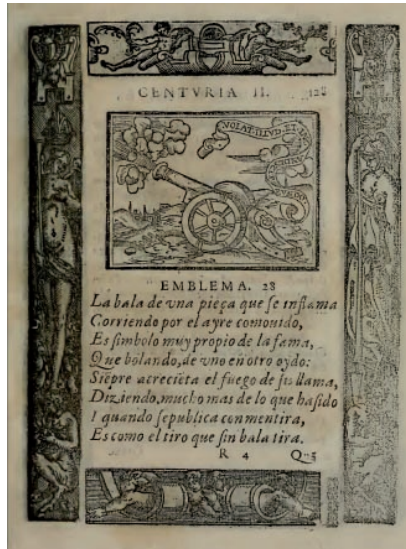 CENTVRIA II. 128
VOLAT ILLVD, ET
EMBLEMA. 28
La bala de vna pieça que se inflama
Corriendo por el ayre comouido,
Es simbolo muy propio de la fama,
Que bolando, de vno en otro oydo:
Siẽpre acreciẽta el fuego de su llama,
Diziendo, mucho mas de lo que ha sido
I quando se publica con mentira,
Es como el tiro que sin bala tira.
R 4